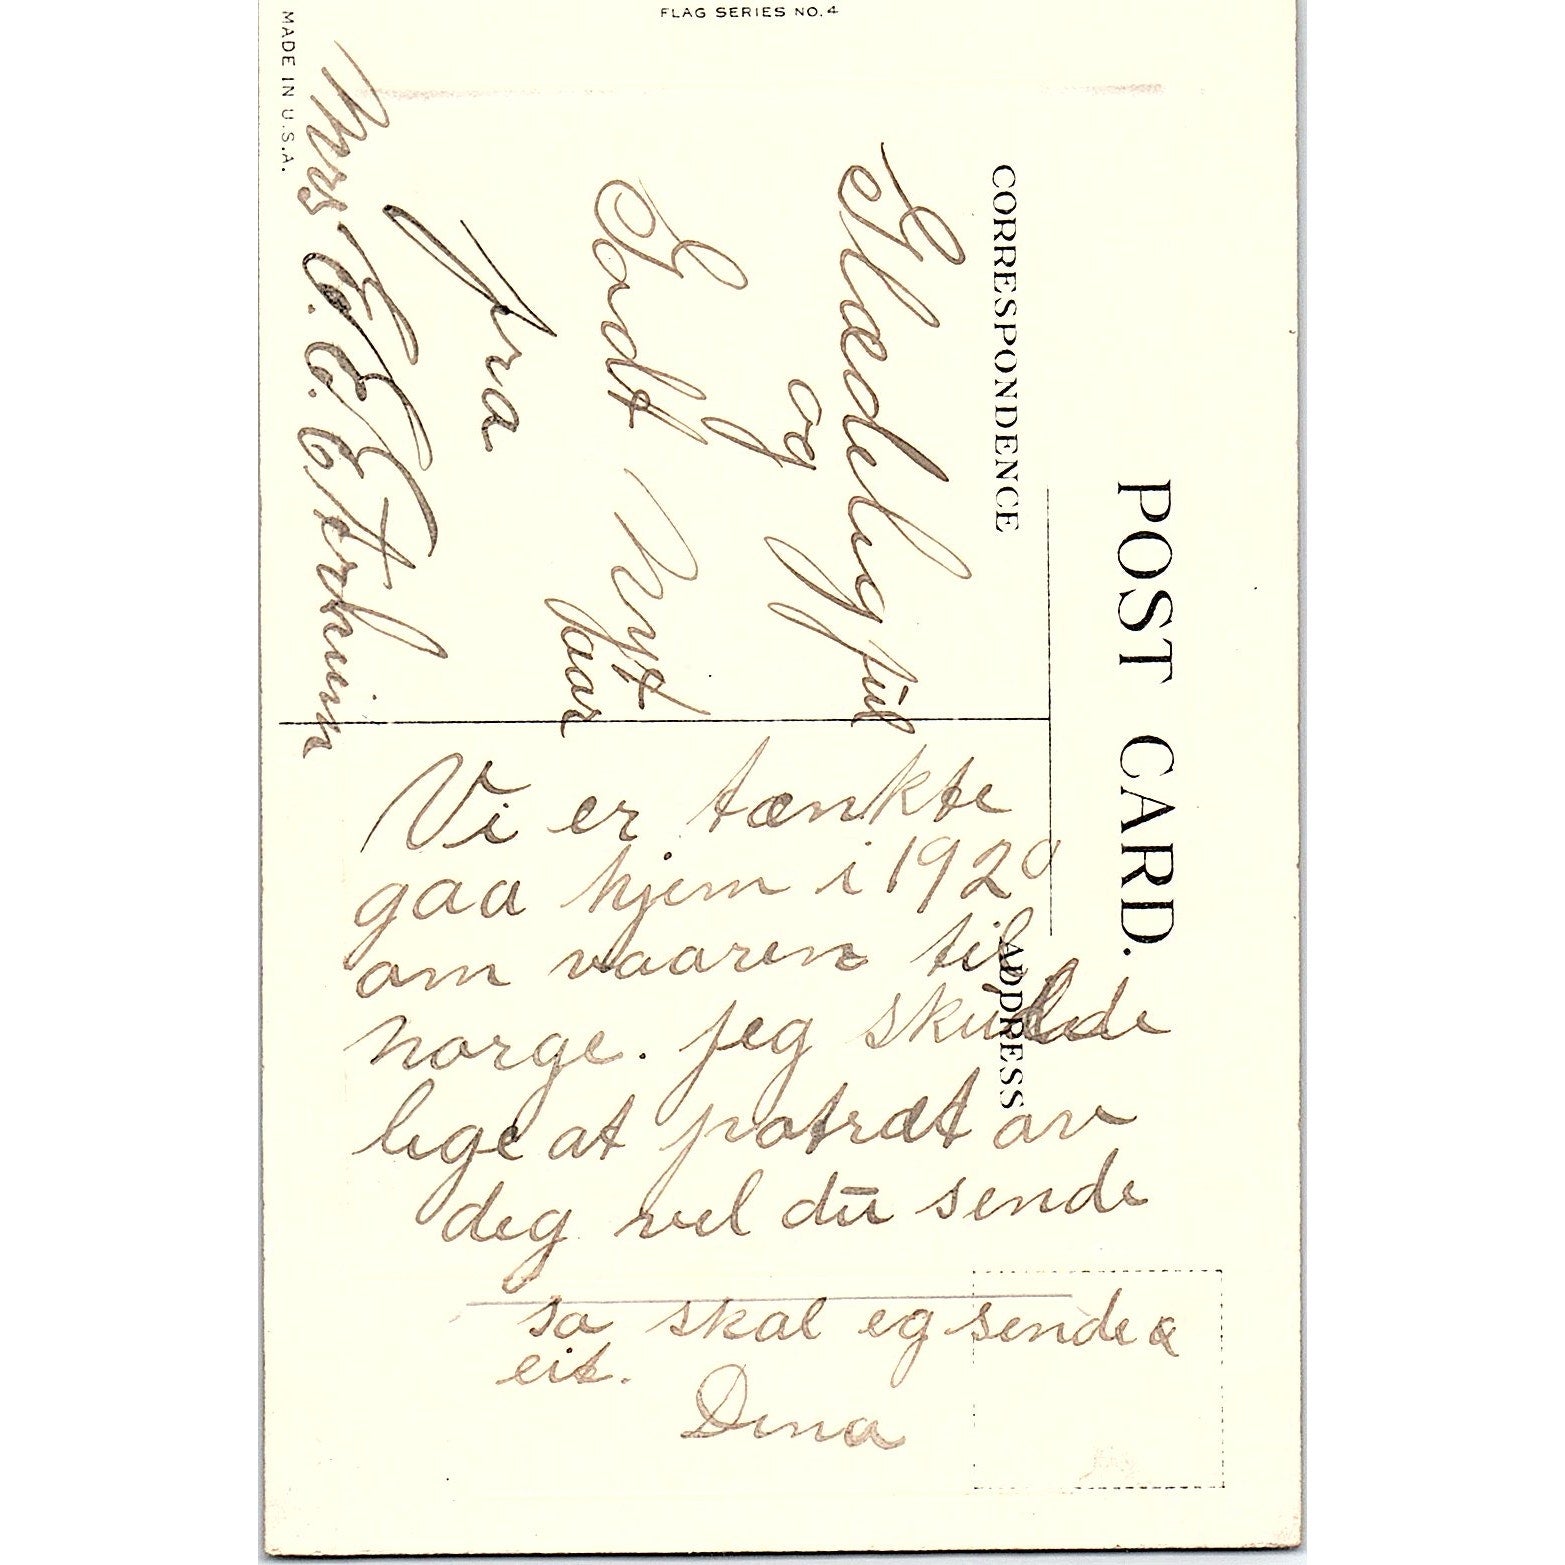 FLAG SERIES NO. 4
MADE IN U.S.A.
POST CARD.
CORRESPONDENCE
ADDRESS
Glædelig jul
og
Godt Nyt
aar
fra
Mrs E. E. Eterheim
Vi er tænkte
gaa hjem i 1920
om vaaren til
norge. jeg skulde
lige at potræt av
deg vel du sende
so skal eg sende
eit.
Dina